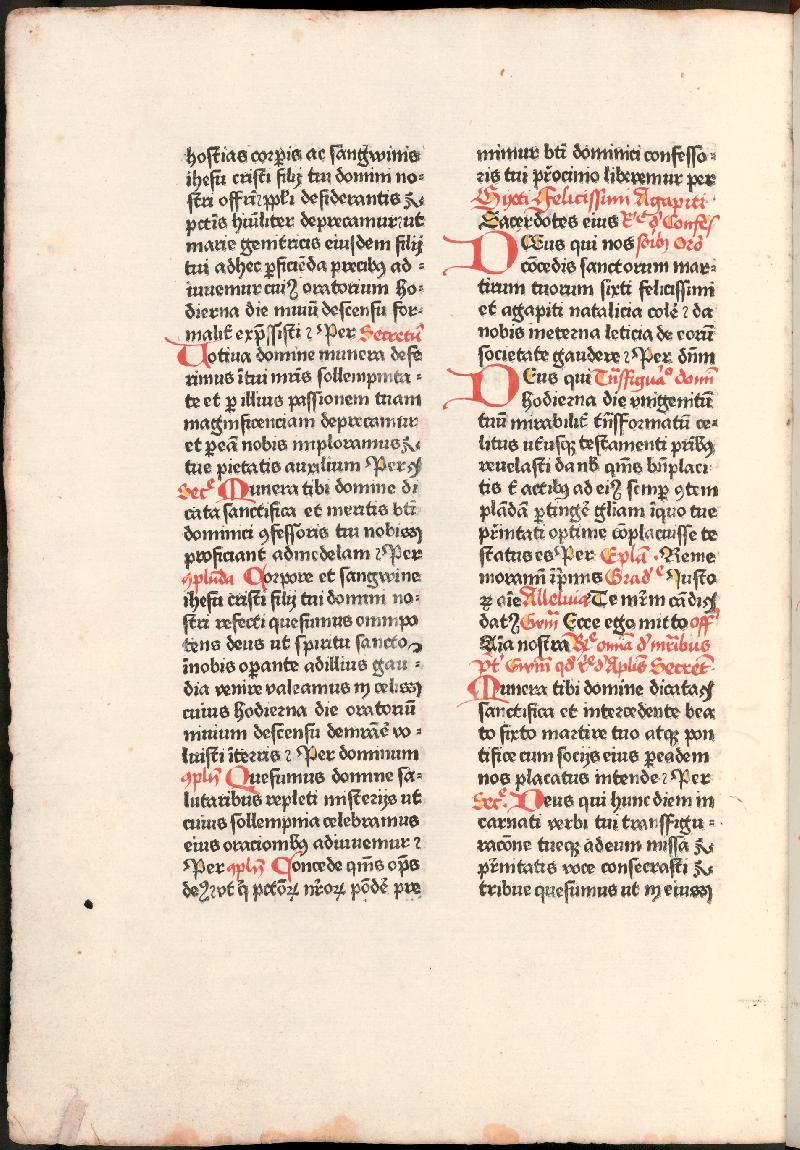 hostias corꝑis ac sangwinis
ihesu cristi filij tui domini no=
stri offerīꝰ ppl'i desiderantis ⁊
pctīs hūiliter deprecamur: ut
marie genitricis eiusdem filij
tui adhec ꝑficiēda precibꝫ ad=
iuuemur cuiꝰ oratorium ho=
dierna die niuiū descensu for=
malit̄ exp̄ssisti ⁊ Per Secretū
Uotiua domine munera defe
rimus ītui mr̄is sollempnita=
te et ꝑ illius passionem tuam
magnificenciam deprecamur
et ꝑ eā nobis imploramus ⁊
tue pietatis auxilium Per
Secᵉ Munera tibi domine di
cata sanctifica et meritis bt̄i
dominici ꝯfessoris tui nobis
proficiant ad medelam ⁊ Per
ꝯplenda Corpore et sangwine
ihesu cristi filij tui domini no=
stri refecti quesimus omnipo
tens deus ut spiritu sancto
ī nobis oꝑante ad illius gau=
dia venire valeamus in celis
cuius hodierna die oratoriū
niuium descensu demr̄are vo=
luisti ī terris ⁊ Per dominum
ꝯplēꝰ Quesumus domine sa=
lutaribus repleti misterijs ut
cuius sollempnia celebramus
eius oracionibꝫ adiuuemur ⁊
Per ꝯplēꝰ Concede qm̄s op̄s
deꝰ: vt q̄ pctōꝝ nr̄oꝝ pōde pre
mimur bt̄i dominici confesso=
ris tui pr̄ocinio liberemur per
Sixti Felicissimi Agapiti
Sacerdotes eius Rᵉ d' Confes
DEus qui nos sc̄ibꝫ Orō
cōcedis sanctorum mar=
tirum tuorum sixti felicissimi
et agapiti natalicia colē ⁊ da
nobis in eterna leticia de eorū
societate gaudere ⁊ Per dn̄m
DEus qui Tn̄sfiguaᵒ domī
hodierna die vnigenitū
tuū mirabilit̄ tn̄sformatū ce=
litus ut̄usqꝫ testamenti pr̄ibꝫ
reuelasti da nb̄ qm̄s bn̄placi
tis t̄ actibꝫ ad eiꝰ semꝑ ꝯtem
plādā ꝑtingē gliam ī quo tue
pr̄nitati optime cōplacuisse te
status es Per Eplā. Reme
moramī īp̄mis Gradᵉ Iusto
ꝝ aīe Alleluia Te mr̄m cādiꝰ
datꝰ Gwm̄ Ecce ego mitto off'
Aīa nostra Rᵉ. om̄ia d' mr̄ibus
pt̄' Gwm̄ qd' Rᵉ d' Aplīs Secret'
Munera tibi domine dicata
sanctifica et intercedente bea
to sixto martire tuo atqꝫ pon
tifice cum socijs eius ꝑ eadem
nos placatus intende ⁊ Per
Secᵉ. Deus qui hunc diem in
carnati verbi tui transfigu=
racōne tueqꝫ ad eum missa ⁊
pr̄nitatis voce consecrasti ⁊
tribue quesumus ut in eius